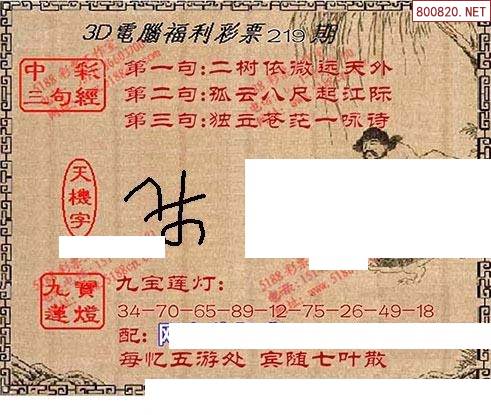 800820.NET
3D電腦福利彩票219期
中彩
三句經
第一句:二树依微远天外
第二句:孤云八尺起江际
第三句:独立苍茫一咏诗
天機字
九寳
蓮燈
九宝莲灯:
34-70-65-89-12-75-26-49-18
配:
每忆五游处 宾随七叶散